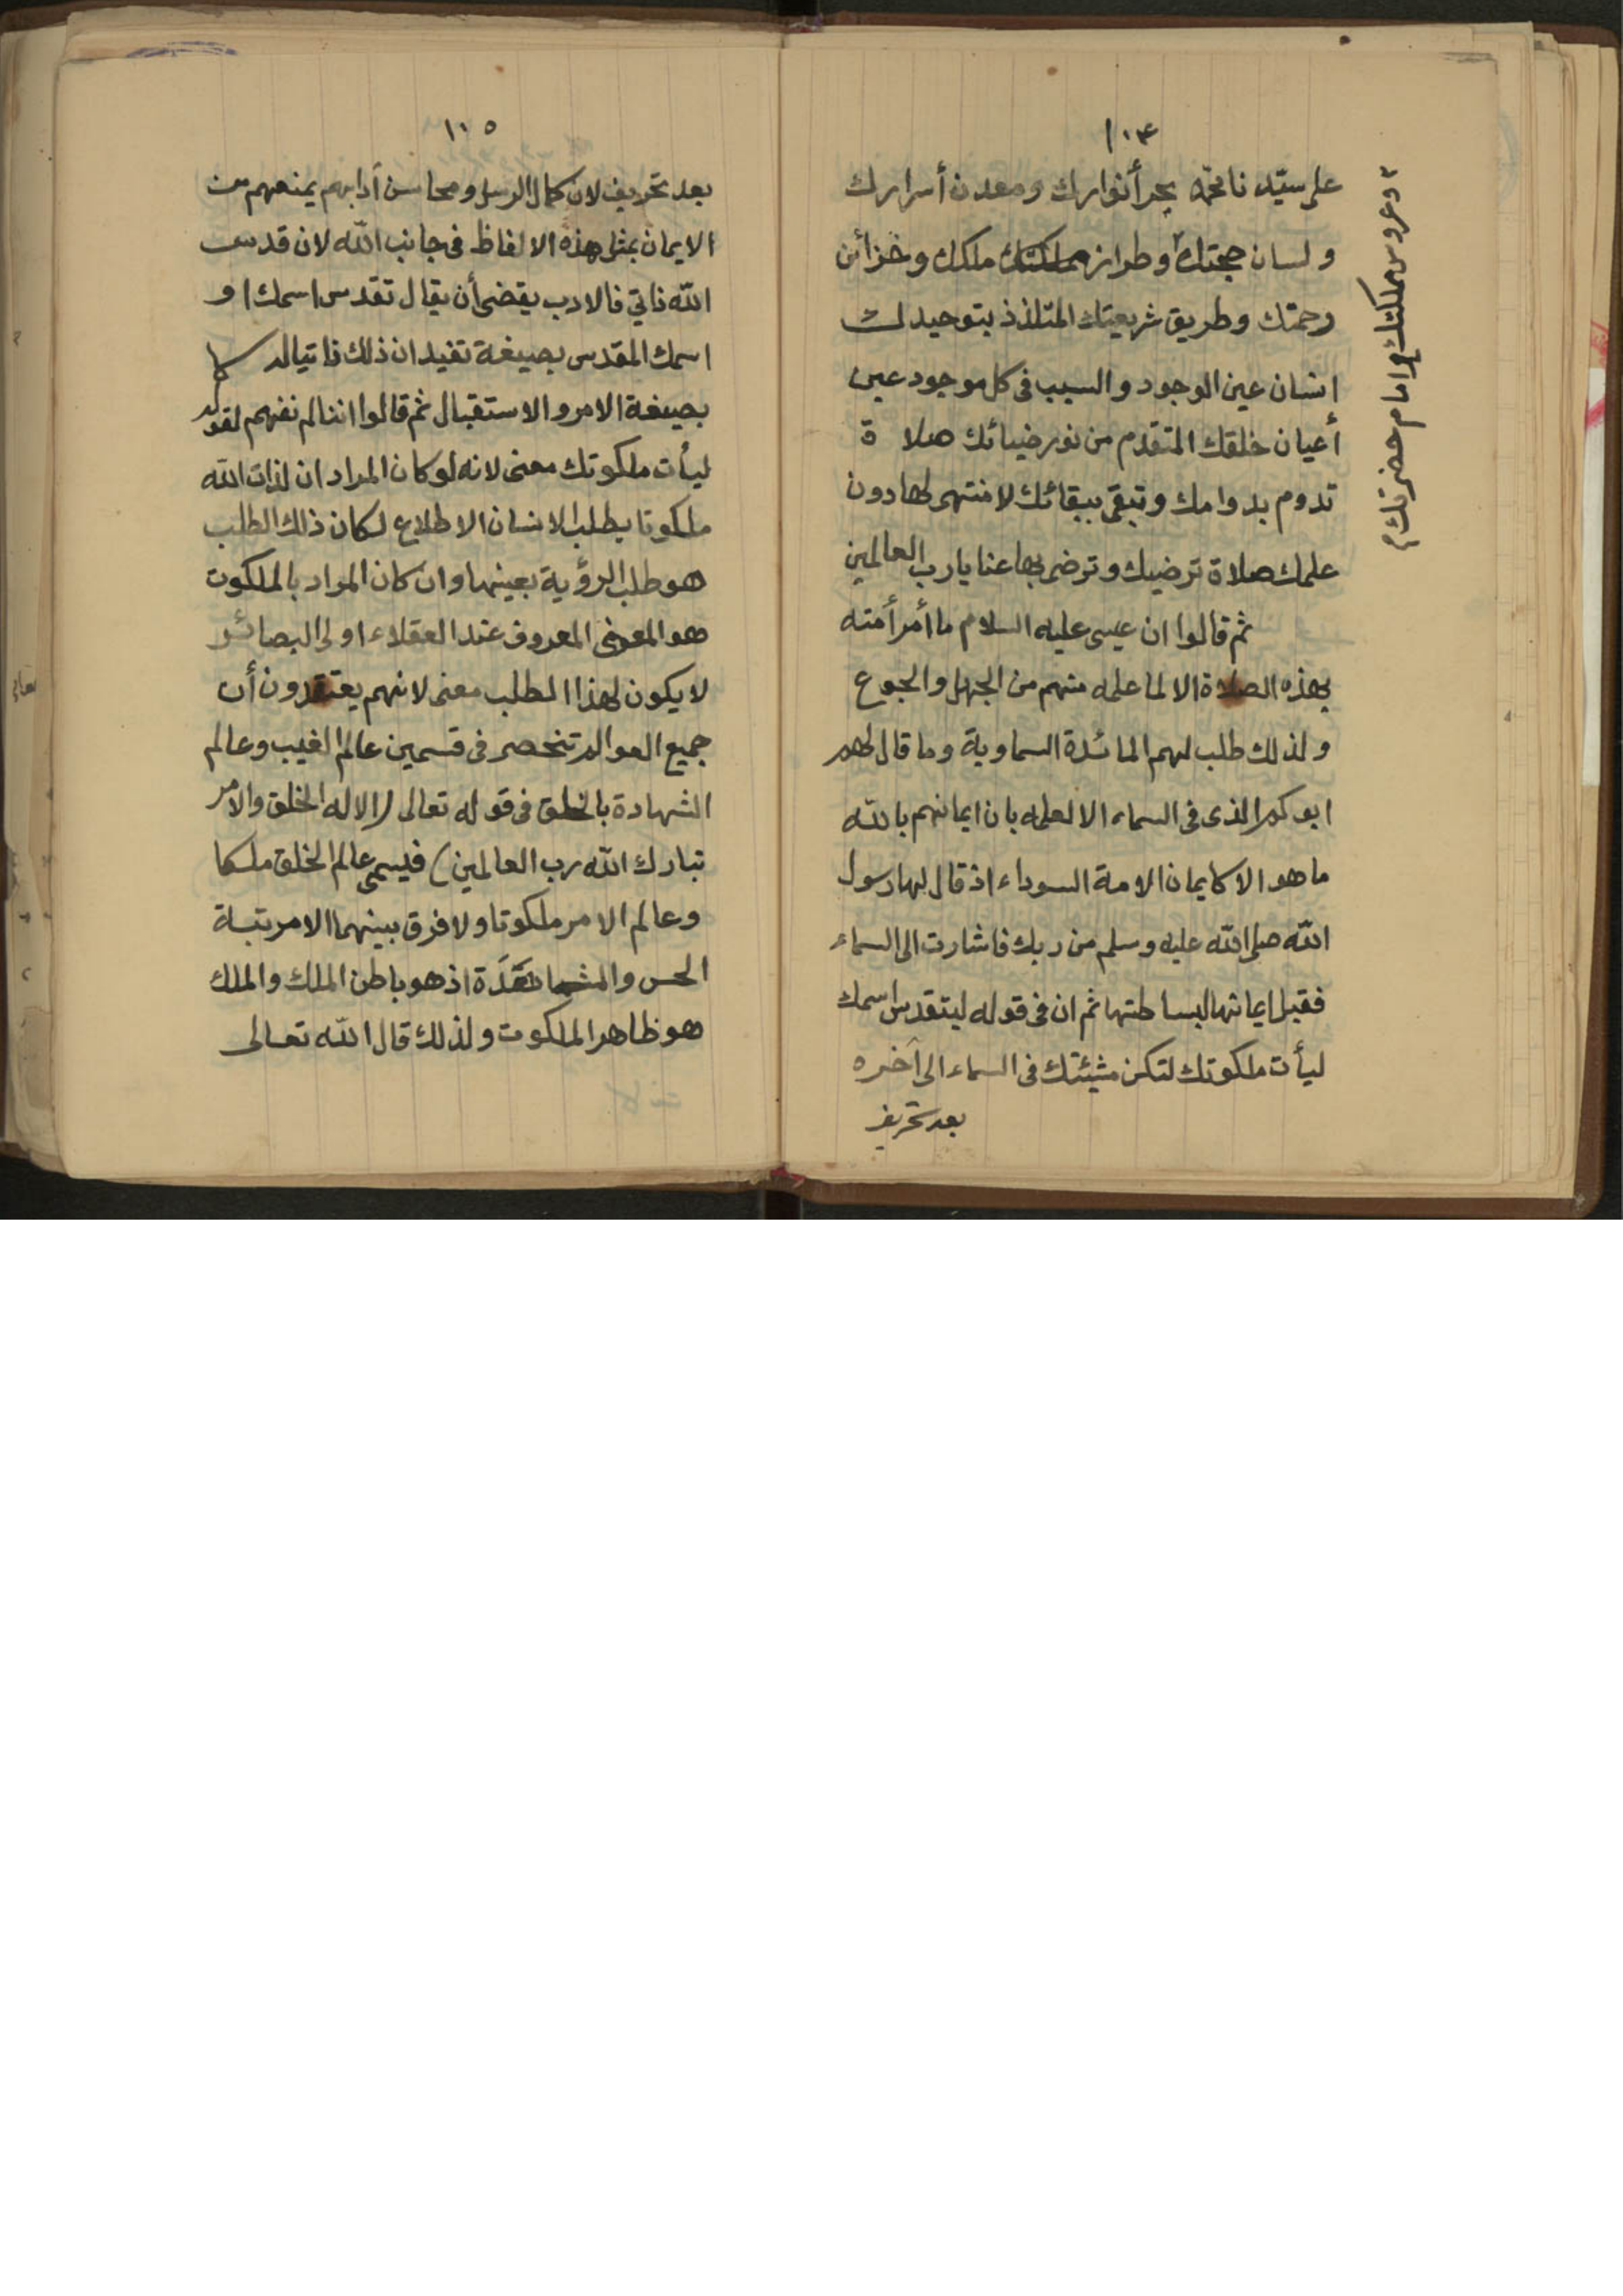 ١٠٤
على سيدنا محمد بحر أنوارك ومعدن أسرارك
ولسان حجتك وطراز ملكك وخزائن
رحمتك وطريق شريعتك المتلذذ بتوحيدك
انسان عين الوجود والسبب فى كل موجود عين
أعيان خلقك المتقدم من نور ضيائك صلاة
تدوم بدوامك وتبقى ببقائك لا منتهى لها دون
علمك صلاة ترضيك وترضى بها عنا يا رب العالمين
ثم قالوا ان عيسى عليه السلام ما أمر أمته
بهذه الصلاة الا لما علمه منهم من الجهل والجوع
ولذلك طلب لهم المائدة السماوية وما قال لهم
ابوكم الذى فى السماء الا لعلمه بان ايمانهم بالله
ما هو الا كايمان الامة السوداء اذ قال لها رسول
الله صلى الله عليه وسلم من ربك فاشارت الى السماء
فقبل ايمانها لبساطتها ثم ان فى قوله ليتقدس اسمك
ليأت ملكوتك لتكن مشيئتك فى السماء الى آخره
بعد تحريف
وعروس مملكتك وامام حضرتك
١٠٥
بعد تحريف لان كمال الرسل ومحاسن آدابهم يمنعهم من
الايمان بمثل هذه الالفاظ فى جانب الله لان قدس
الله ذاتي فالادب يقضى أن يقال تقدس اسمك او
اسمك المقدس بصيغة تفيد ان ذلك ذاتيا له لا
بصيغة الامر والاستقبال ثم قالوا اننا لم نفهم لقوله
ليأت ملكوتك معنى لانه لو كان المراد ان لذات الله
ملكوتا يطلب الانسان الاطلاع لكان ذلك الطلب
هو طلب الرؤية بعينها وان كان المراد بالملكوت
هو المعنى المعروف عند العقلاء اولى البصائر
لا يكون لهذا الطلب معنى لانهم يعتقدون أن
جميع العوالم تنحصر فى قسمين عالم الغيب وعالم
الشهادة بالخلق فى قوله تعالى (الا له الخلق والامر
تبارك الله رب العالمين) فيسمى عالم الخلق ملكا
وعالم الامر ملكوتا ولا فرق بينهما الا مرتبة
الحس والمشاهدة اذ هو باطن الملك والملك
هو ظاهر الملكوت ولذلك قال الله تعالى